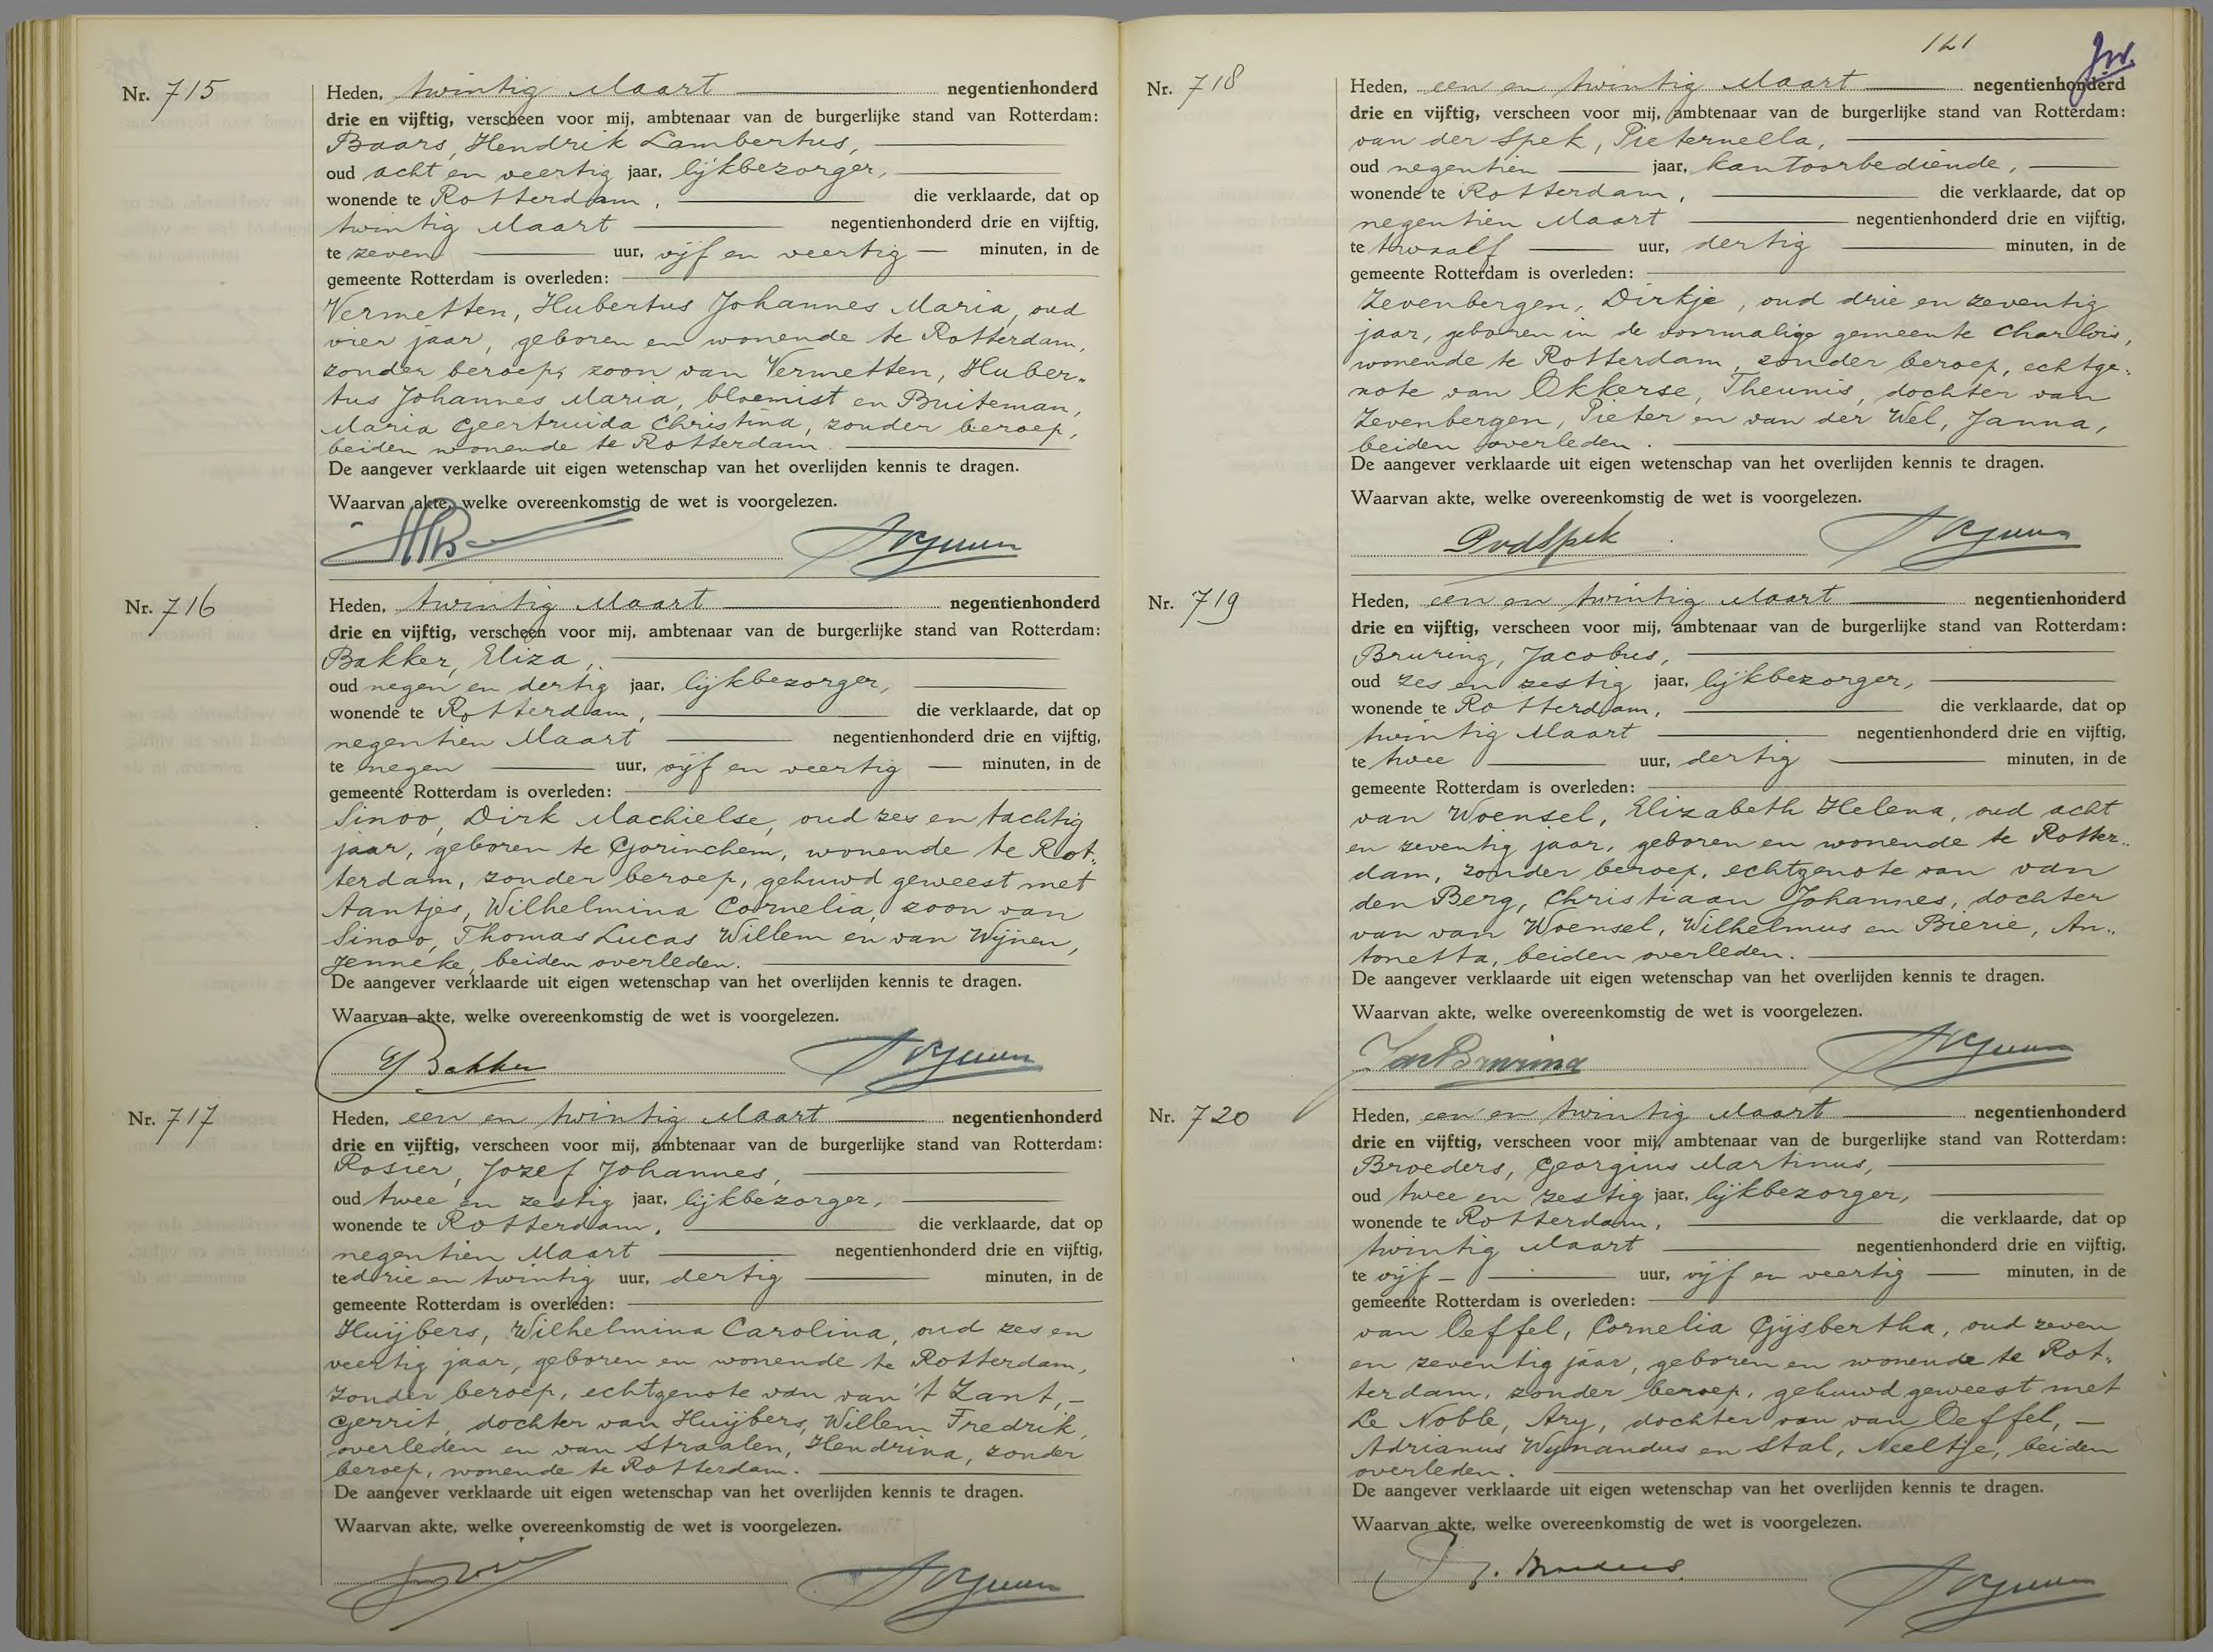 Nr. 715
Heden, twintig Maart negentienhonderd
drie en vijftig, verscheen voor mij, ambtenaar van de burgerlijke stand van Rotterdam:
Baars, Hendrik Lambertus,
oud acht en veertig jaar, lijkbezorger,
wonende te Rotterdam, die verklaarde, dat op
twintig Maart negentienhonderd drie en vijftig,
te zeven uur, vijf en veertig minuten, in de
gemeente Rotterdam is overleden:
Vermetten, Hubertus Johannes Maria, oud
vier jaar, geboren en wonende te Rotterdam,
zonder beroep, zoon van Vermetten, Huber-
tus Johannes Maria, bloemist en Buiteman,
Maria Geertruida Christina, zonder beroep,
beiden wonende te Rotterdam.
De aangever verklaarde uit eigen wetenschap van het overlijden kennis te dragen.
Waarvan akte, welke overeenkomstig de wet is voorgelezen.
Nr. 716
Heden, twintig Maart negentienhonderd
drie en vijftig, verscheen voor mij, ambtenaar van de burgerlijke stand van Rotterdam:
Bakker, Eliza,
oud negen en dertig jaar, lijkbezorger,
wonende te Rotterdam, die verklaarde, dat op
negentien Maart negentienhonderd drie en vijftig,
te negen uur, vijf en veertig minuten, in de
gemeente Rotterdam is overleden:
Sinoo, Dirk Machielse, oud zes en tachtig
jaar, geboren te Gorinchem, wonende te Rot-
terdam, zonder beroep, gehuwd geweest met
Aantjes, Wilhelmina Cornelia, zoon van
Sinoo, Thomas Lucas Willem en van Wijnen,
Jenneke, beiden overleden.
De aangever verklaarde uit eigen wetenschap van het overlijden kennis te dragen.
Waarvan akte, welke overeenkomstig de wet is voorgelezen.
E Bakker
Nr. 717
Heden, een en twintig Maart negentienhonderd
drie en vijftig, verscheen voor mij, ambtenaar van de burgerlijke stand van Rotterdam:
Rosier, Jozef Johannes,
oud twee en zestig jaar, lijkbezorger,
wonende te Rotterdam, die verklaarde, dat op
negentien Maart negentienhonderd drie en vijftig,
te drie en twintig uur, dertig minuten, in de
gemeente Rotterdam is overleden:
Huijbers, Wilhelmina Carolina, oud zes en
veertig jaar, geboren en wonende te Rotterdam,
zonder beroep, echtgenote van van 't Zant,
Gerrit, dochter van Huijbers, Willem Fredrik,
overleden en van Straalen, Hendrina, zonder
beroep, wonende te Rotterdam.
De aangever verklaarde uit eigen wetenschap van het overlijden kennis te dragen.
Waarvan akte, welke overeenkomstig de wet is voorgelezen.
121
Nr. 718
Heden, een en twintig Maart negentienhonderd
drie en vijftig, verscheen voor mij, ambtenaar van de burgerlijke stand van Rotterdam:
van der Spek, Pieternella,
oud negentien jaar, kantoorbediende,
wonende te Rotterdam, die verklaarde, dat op
negentien Maart negentienhonderd drie en vijftig,
te twaalf uur, dertig minuten, in de
gemeente Rotterdam is overleden:
Zevenbergen, Dirkje, oud drie en zeventig
jaar, geboren in de voormalige gemeente Charlois,
wonende te Rotterdam, zonder beroep, echtge-
note van Okkerse, Theunis, dochter van
Zevenbergen, Pieter en van der Wel, Janna,
beiden overleden.
De aangever verklaarde uit eigen wetenschap van het overlijden kennis te dragen.
Waarvan akte, welke overeenkomstig de wet is voorgelezen.
PvdSpek
Nr. 719
Heden, een en twintig Maart negentienhonderd
drie en vijftig, verscheen voor mij, ambtenaar van de burgerlijke stand van Rotterdam:
Bruring, Jacobus,
oud zes en zestig jaar, lijkbezorger,
wonende te Rotterdam, die verklaarde, dat op
twintig Maart negentienhonderd drie en vijftig,
te twee uur, dertig minuten, in de
gemeente Rotterdam is overleden:
van Woensel, Elizabeth Helena, oud acht
en zeventig jaar, geboren en wonende te Rotter-
dam, zonder beroep, echtgenote van van
den Berg, Christiaan Johannes, dochter
van van Woensel, Wilhelmus en Bierie, An-
tonetta, beiden overleden.
De aangever verklaarde uit eigen wetenschap van het overlijden kennis te dragen.
Waarvan akte, welke overeenkomstig de wet is voorgelezen.
Jac Bruring
Nr. 720
Heden, een en twintig Maart negentienhonderd
drie en vijftig, verscheen voor mij, ambtenaar van de burgerlijke stand van Rotterdam:
Broeders, Georgius Martinus,
oud twee en zestig jaar, lijkbezorger,
wonende te Rotterdam, die verklaarde, dat op
twintig Maart negentienhonderd drie en vijftig,
te vijf uur, vijf en veertig minuten, in de
gemeente Rotterdam is overleden:
van Oeffel, Cornelia Gijsbertha, oud zeven
en zeventig jaar, geboren en wonende te Rot-
terdam, zonder beroep, gehuwd geweest met
Le Noble, Ary, dochter van van Oeffel,
Adrianus Wynandus en Stal, Neeltje, beiden
overleden.
De aangever verklaarde uit eigen wetenschap van het overlijden kennis te dragen.
Waarvan akte, welke overeenkomstig de wet is voorgelezen.